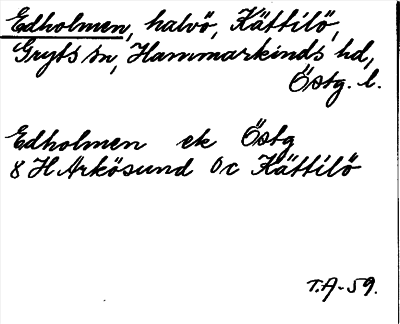 Edholmen, halvö, Kättilö,
Gryts sn, Hammarkinds hd,
Östg. l.
Edholmen ek Östg
8 H Arkösund Öc Kättilö
T.A-59.